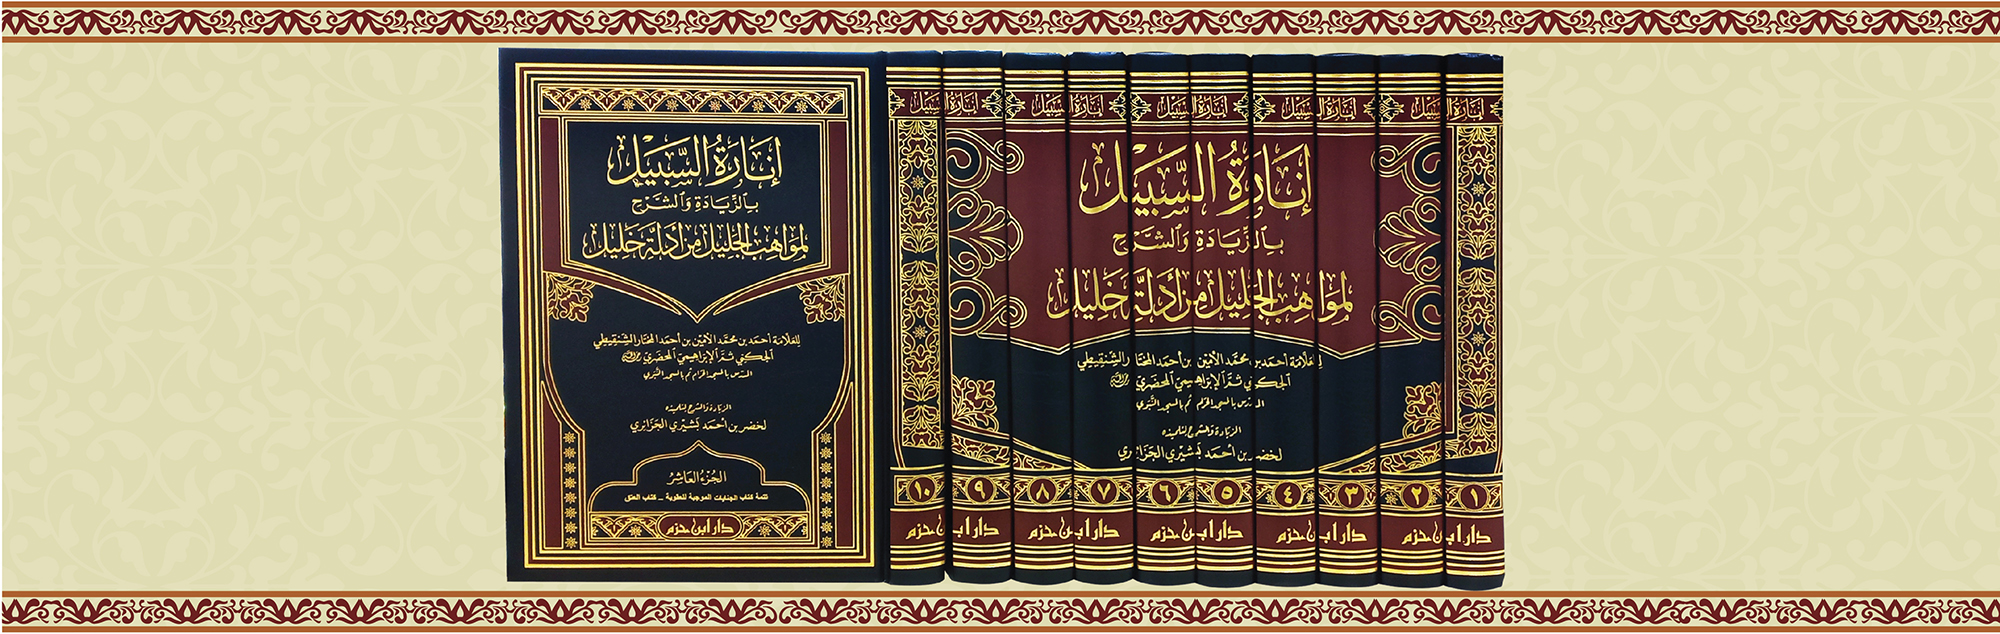 إنارة السبيل
بالزيادة والشرح
لمواهب الجليل من أدلة خليل
للعلامة أحمد بن محمد الأمين بن أحمد المختار الشنقيطي
الجكني ثم الإبراهيمي المحضري رحمه الله
المدرس بالمسجد الحرام ثم بالمسجد النبوي
الزيادة والشرح لتلميذه
لخضر بن أحمد بشيري الجزائري
الجزء العاشر
تتمة كتاب الجنايات الموجبة للعقوبة - كتاب العتق
دار ابن حزم
إنارة السبيل إنارة السبيل إنارة السبيل إنارة السبيل إنارة السبيل
إنارة السبيل
بالزيادة والشرح
لمواهب الجليل من أدلة خليل
للعلامة أحمد بن محمد الأمين بن أحمد المختار الشنقيطي
الجكني ثم الإبراهيمي المحضري رحمه الله
المدرس بالمسجد الحرام ثم بالمسجد النبوي
الزيادة والشرح لتلميذه
لخضر بن أحمد بشيري الجزائري
١ ٢ ٣ ٤ ٥ ٦ ٧ ٨ ٩ ١٠
دار ابن حزم دار ابن حزم دار ابن حزم دار ابن حزم دار ابن حزم